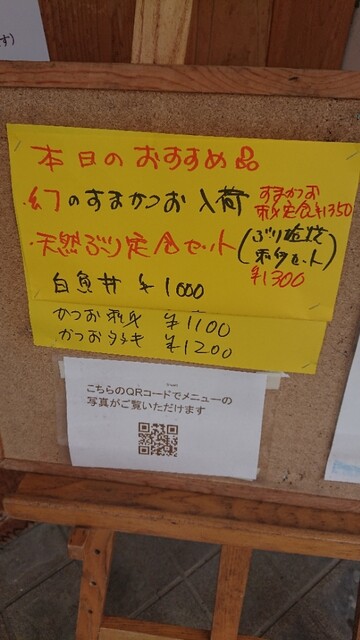 す)
本日のおすすめ品
・幻のすまかつお入荷
すまかつお
刺身定食¥1350
・天然ぶり定食セット
(ぶり塩焼
刺身セット)
¥1300
白魚丼 ¥1000
かつお刺身 ¥1100
かつおタタキ ¥1200
こちらのQRコードでメニューの
写真がご覧いただけます